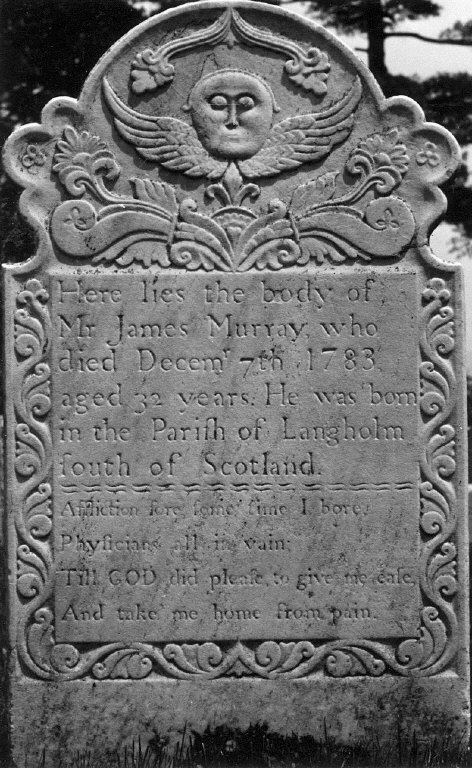 Here lies the body of
Mr James Murray, who
died Decemr 7th 1783.
aged 32 years. He was born
in the Pariſh of Langholm
ſouth of Scotland.
Affliction ſore ſome time I bore,
Phyſicians all in vain;
Till GOD did pleaſe to give me eaſe,
And take me home from pain.